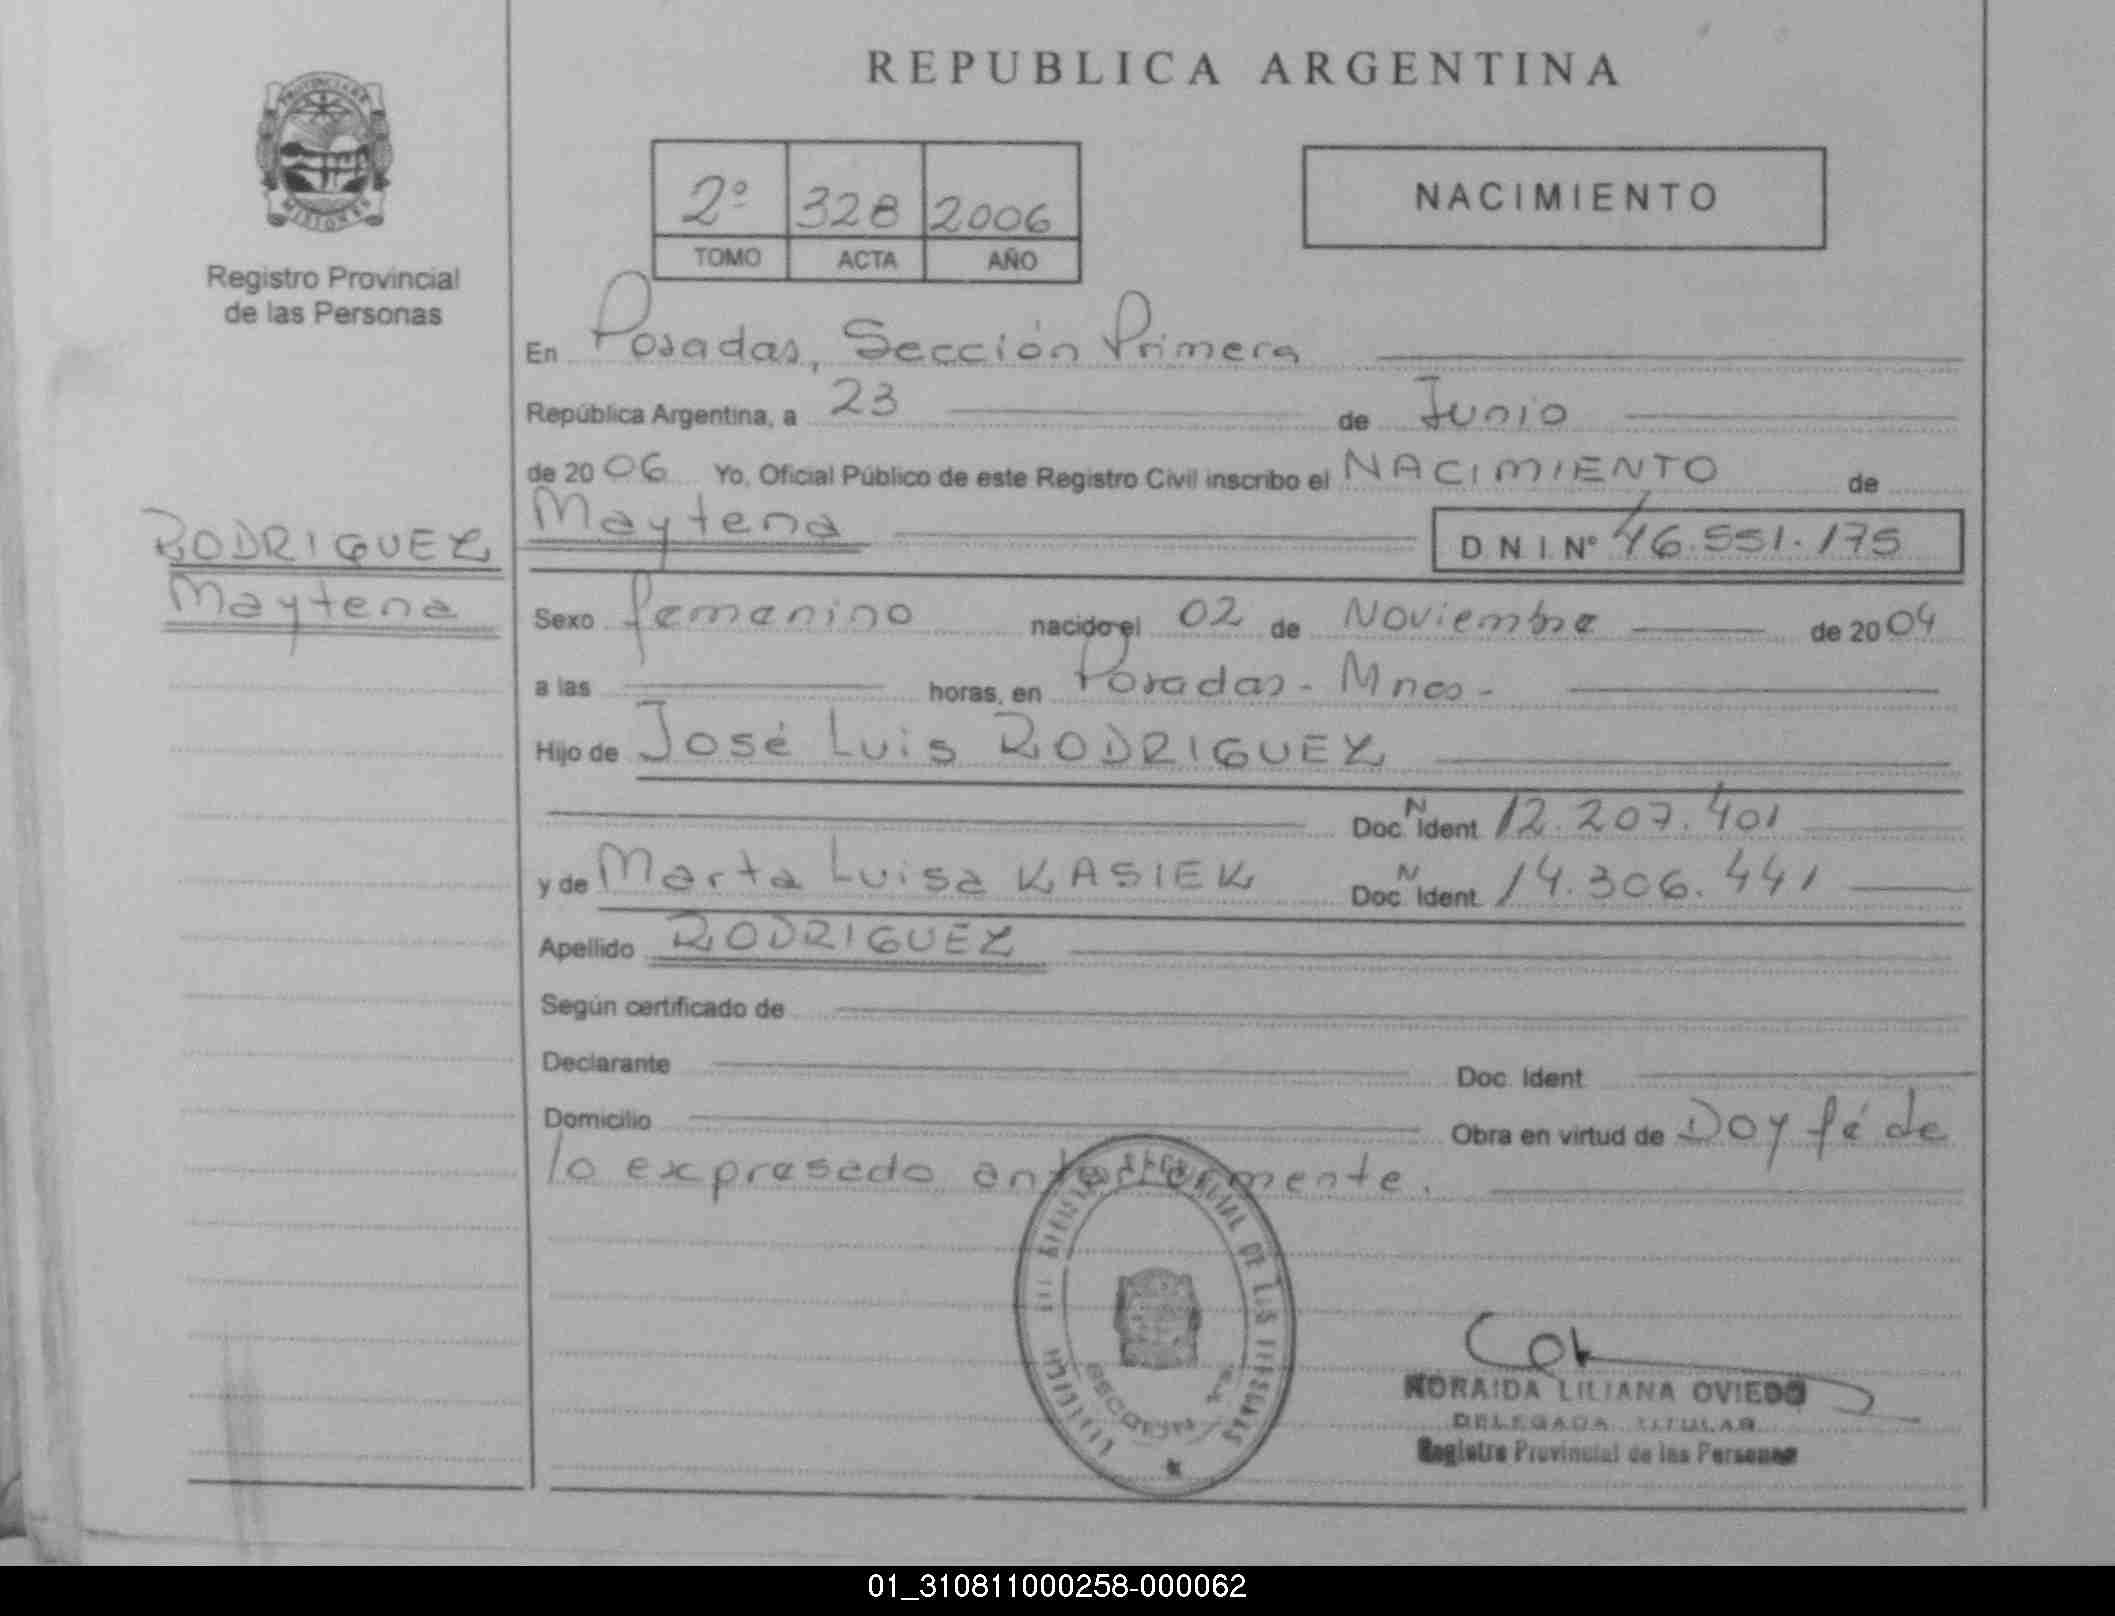 REPUBLICA ARGENTINA
PROVINCIA DE
MISIONES
Registro Provincial
de las Personas
2º 328 2006
TOMO ACTA AÑO
NACIMIENTO
En Posadas, Sección Primera
República Argentina, a 23 de Junio
de 2006 Yo, Oficial Público de este Registro Civil inscribo el NACIMIENTO de
RODRIGUEZ
Maytena
Maytena D.N.I. Nº 46.551.175
Sexo femenino nacido el 02 de Noviembre de 2004
a las horas, en Posadas - Mnes -
Hijo de José Luis RODRIGUEZ
Doc. N Ident 12.207.401
y de Marta Luisa KASIEK Doc. N Ident. 14.306.441
Apellido RODRIGUEZ
Según certificado de
Declarante Doc. Ident
Domicilio Obra en virtud de Doy fé de
lo expresado anteriormente.
DE LAS PERSONAS
NORAIDA LILIANA OVIEDO
DELEGADA TITULAR
Registro Provincial de las Personas
01_310811000258-000062